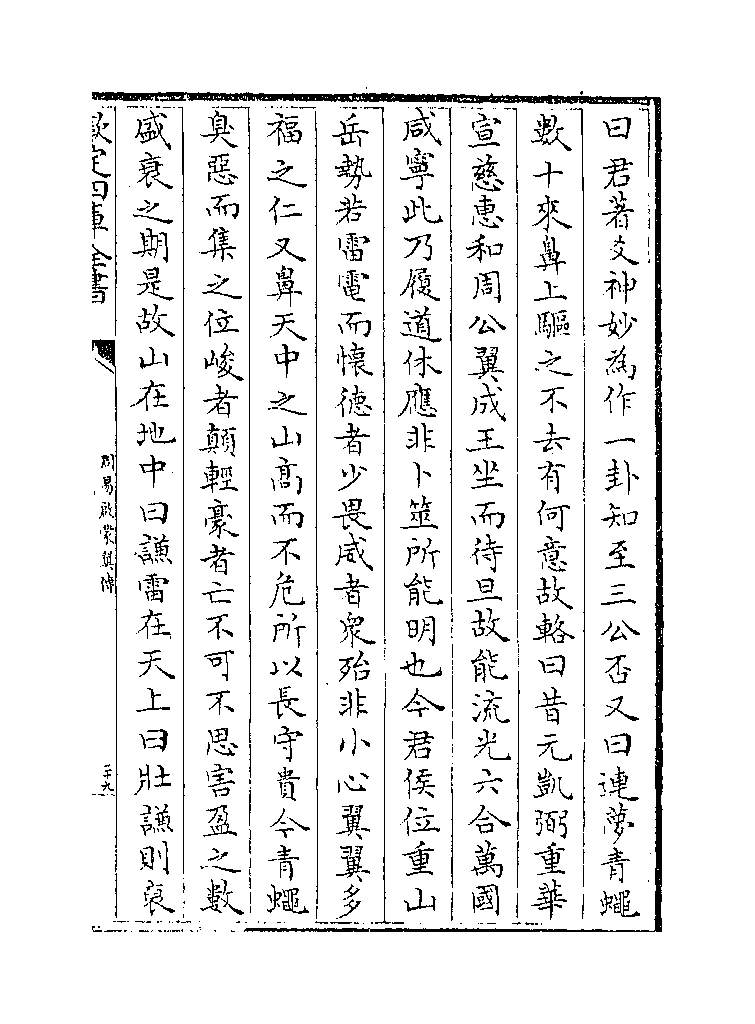 曰君著爻神妙為作一卦知至三公否又曰連夢青蠅
數十來鼻上驅之不去有何意故輅曰昔元凱弼重華
宣慈惠和周公翼成王坐而待旦故能流光六合萬國
咸寧此乃履道休應非卜筮所能明也今君侯位重山
岳勢若雷電而懷德者少畏威者衆殆非小心翼翼多
福之仁又鼻天中之山高而不危所以長守貴今青蠅
臭惡而集之位峻者顛輕豪者亡不可不思害盈之數
盛衰之期是故山在地中曰謙雷在天上曰壯謙則裒
欽定四庫全書
周易啟蒙翼傳
三十九